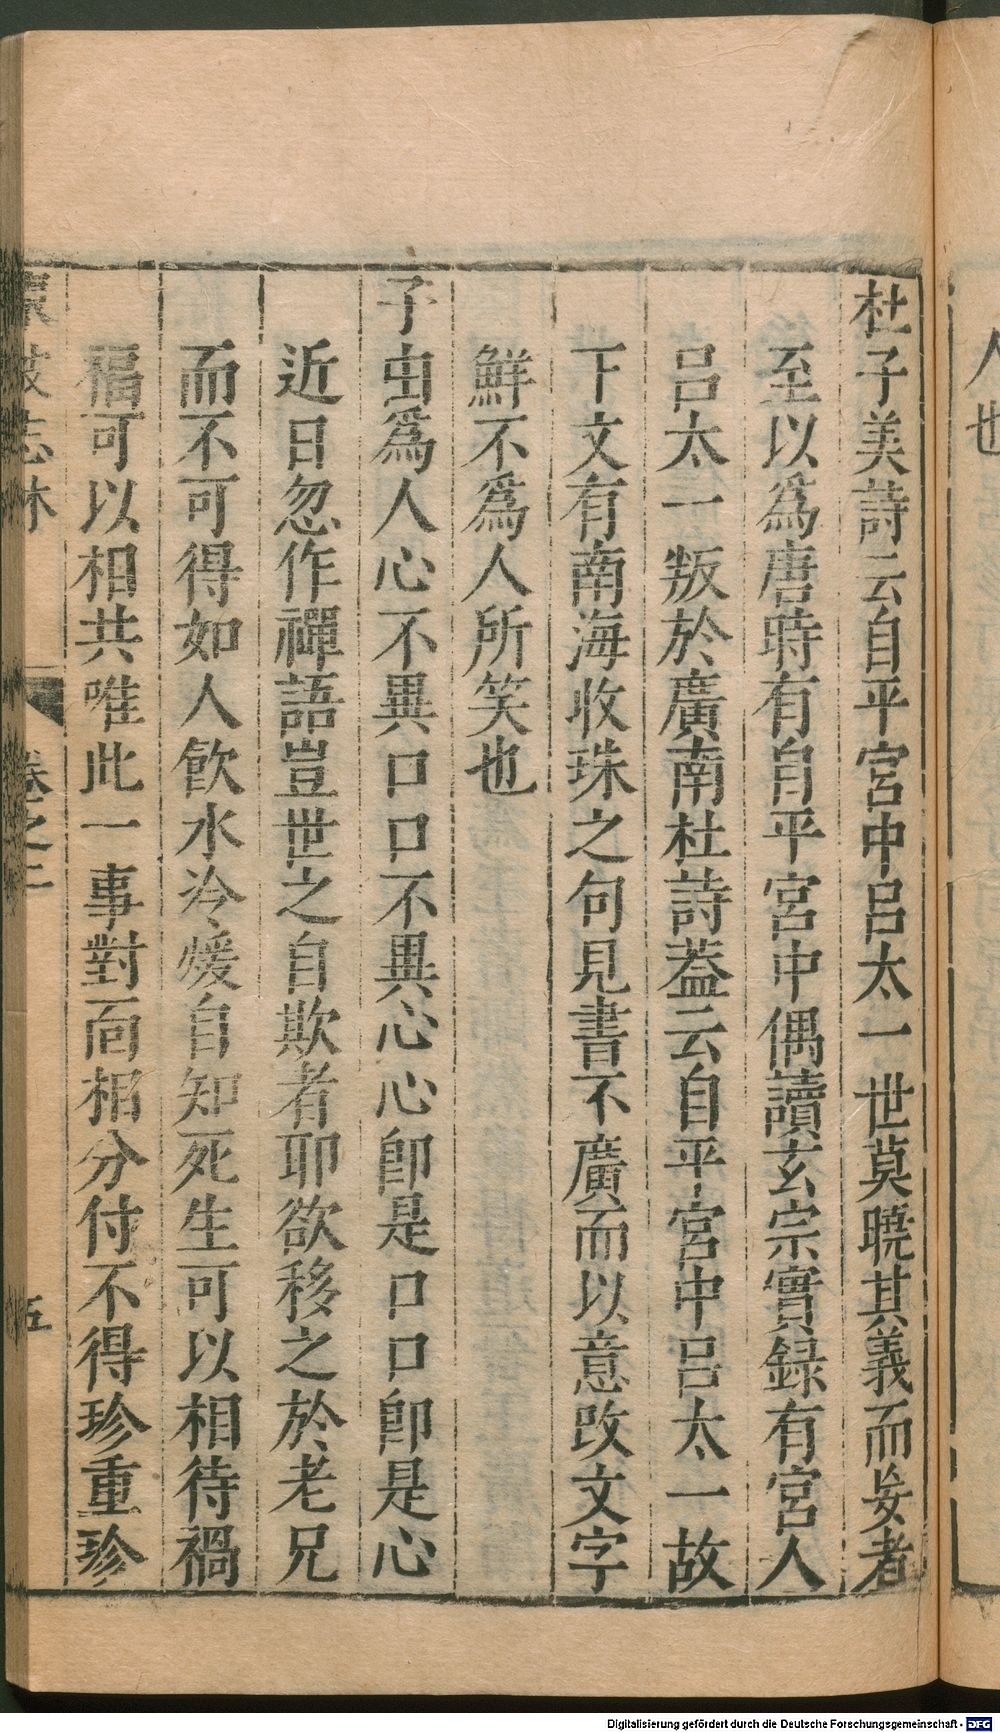 人也
杜子美詩云自平宮中呂太一世莫曉其義而妄者
至以爲唐時有自平宮中偶讀玄宗實録有宮人
呂太一叛於廣南杜詩蓋云自平宮中呂太一故
下文有南海收珠之句見書不廣而以意改文字
鮮不爲人所笑也
子由爲人心不異口口不異心心卽是口口卽是心
近日忽作禪語豈世之自欺者耶欲移之於老兄
而不可得如人飮水冷煖自知死生可以相待禍
福可以相共唯此一事對面相分付不得珍重珍
東坡志林 卷之二 五
Digitalisierung gefördert durch die Deutsche Forschungsgemeinschaft - DFG